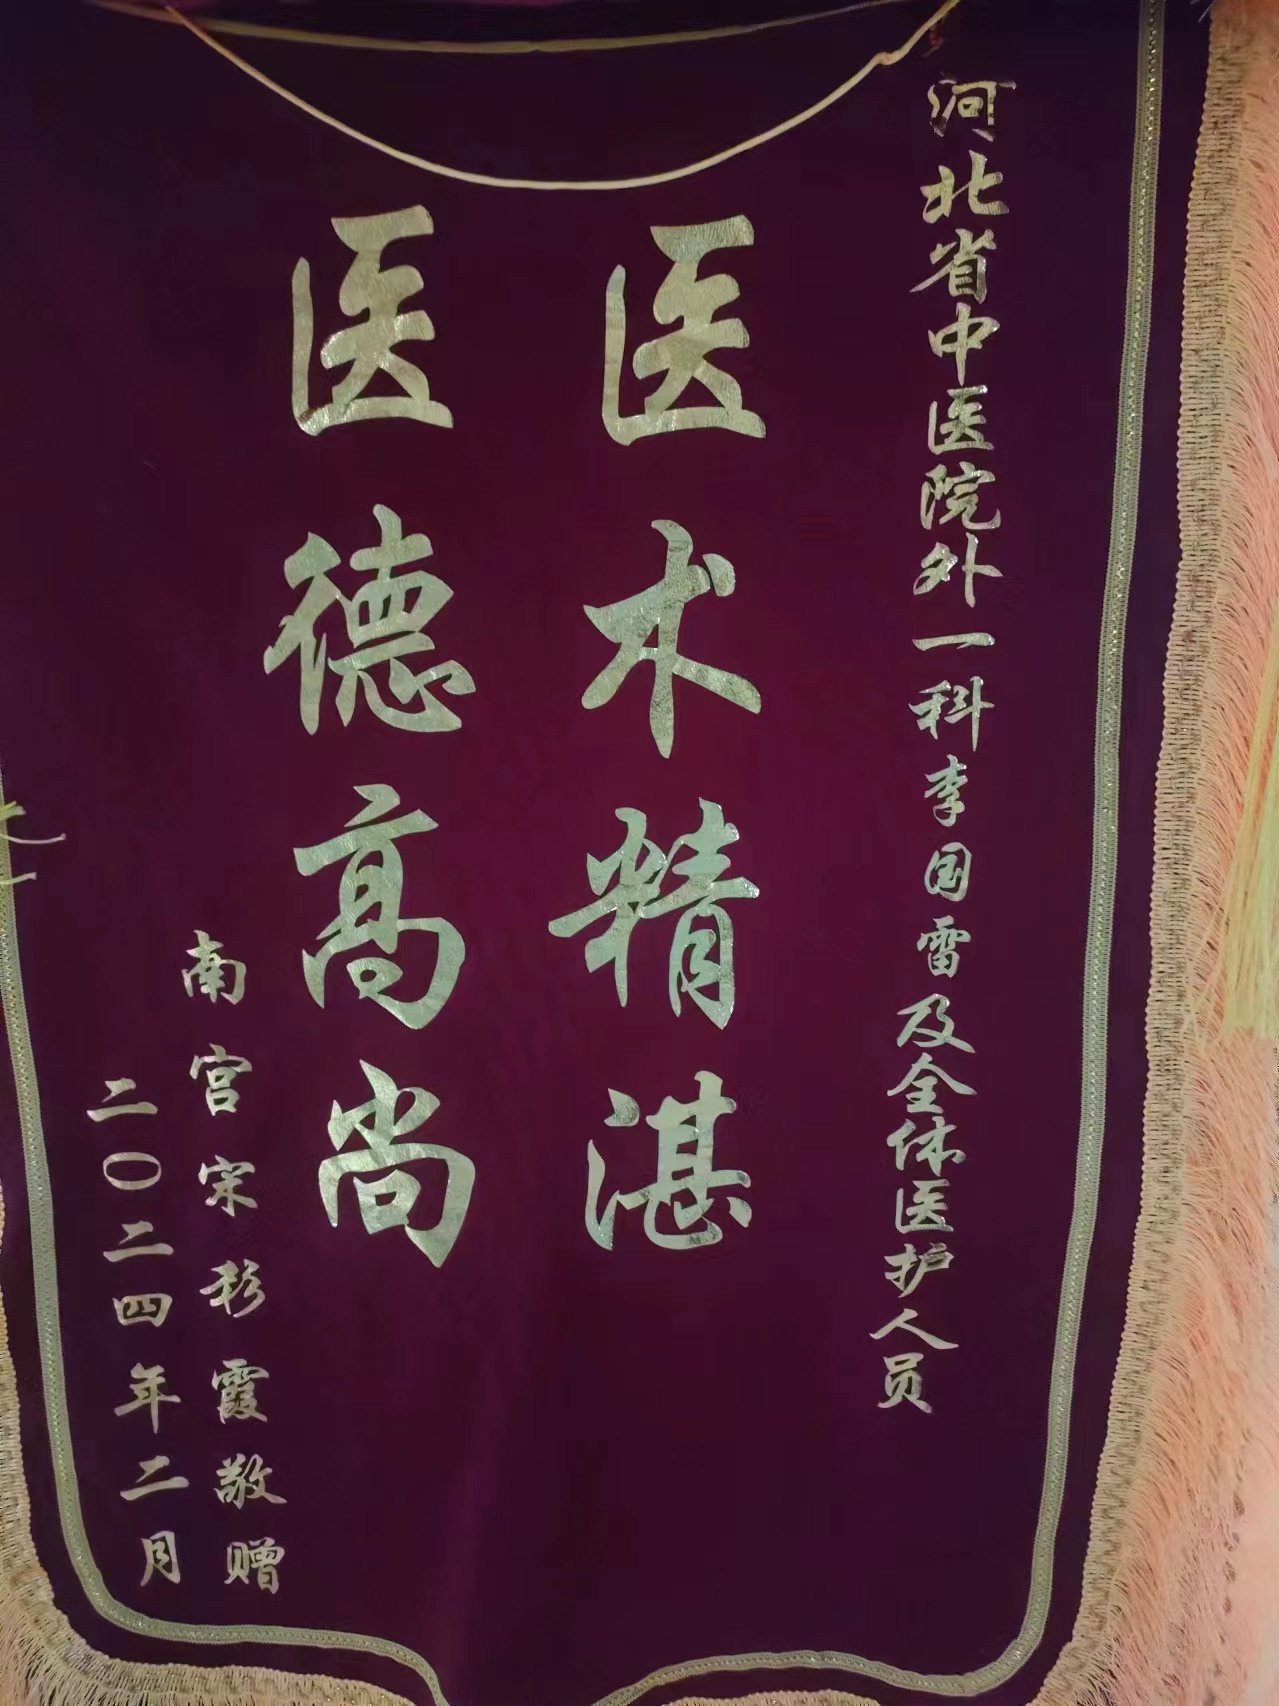 河北省中医院外一科李国雷及全体医护人员
医术精湛
医德高尚
南宫宋彩霞敬赠
二〇二四年二月